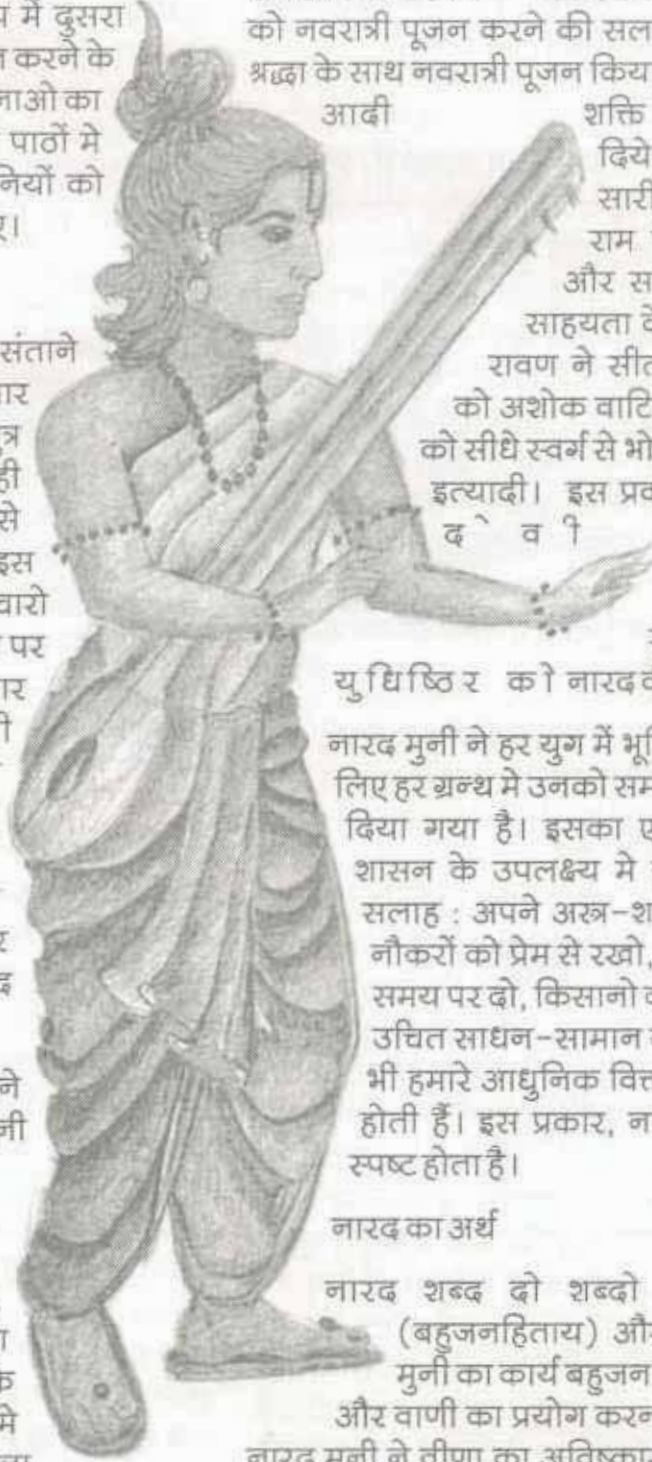 य में दुसरा
करने के
नाओ का
पाठों मे
नियों को
संताने
गार
त्र
ही
से
इस
चारो
पर
गार
र
द्र
ने
नी
ा
के
मे
को नवरात्री पूजन करने की सल
श्रद्धा के साथ नवरात्री पूजन किया
आदी शक्ति
दिये
सारी
राम
और स
साहयता के
रावण ने सीत
को अशोक वाटि
को सीधे स्वर्ग से भो
इत्यादी। इस प्रव
दे वी
युधिष्ठिर को नारद के
नारद मुनी ने हर युग में भूमि
लिए हर ग्रन्थ मे उनको सम
दिया गया है। इसका ए
शासन के उपलक्ष्य मे
सलाह : अपने अस्त्र-श
नौकरों को प्रेम से रखो,
समय पर दो, किसानो व
उचित साधन-सामान
भी हमारे आधुनिक वित्त
होती हैं। इस प्रकार, ना
स्पष्ट होता है।
नारद का अर्थ
नारद शब्द दो शब्दो
(बहुजनहिताय) और
मुनी का कार्य बहुजन
और वाणी का प्रयोग करन
नारद मुनी ने वीणा का अविष्कार